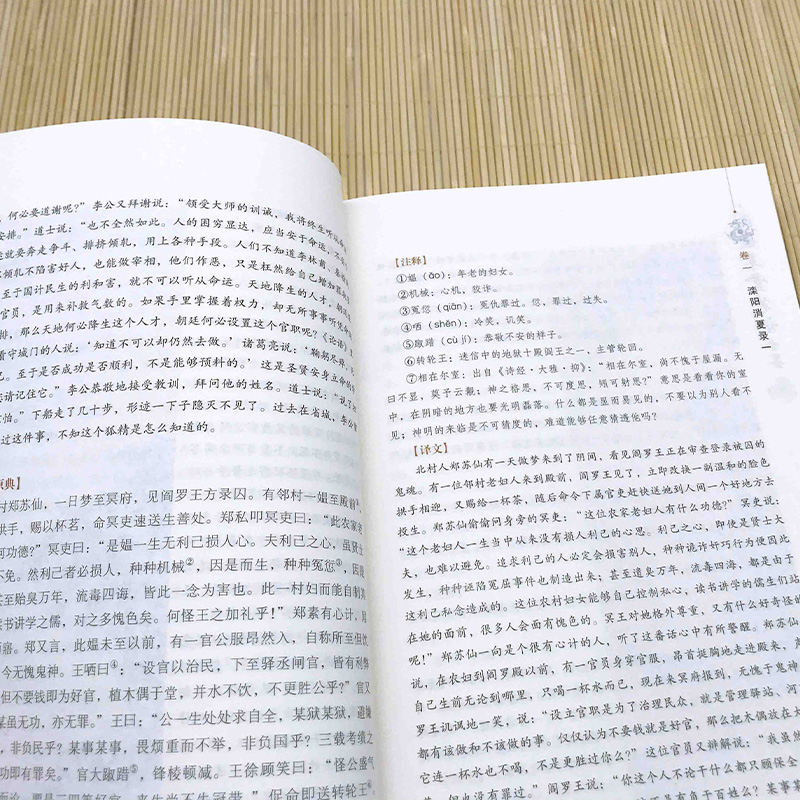 何必要道谢呢?”李公又拜谢说:“领受大师的训诫,我将终生听
安排。”道士说:“也不全然如此。人的困穷显达,应当安于命运。
就要奔走争斗、排挤倾轧,用上各种手段。人们不知道李林甫、
倾轧不陷害好人,也能做宰相,他们作恶,只是枉然给自己增加
至于国计民生的利和害,就不可以听从命运。天地降生的人才,朝廷
官员,是用来补救气数的。如果手里掌握着权力,却无所事事听凭
排,那么天地何必降生这个人才,朝廷何必设置这个官职呢?《论语》
看守城门的人说:‘知道不可以却仍然去做。’诸葛亮说:‘鞠躬尽瘁,
至于是否成功是否顺利,不是能够预料的。’这是圣贤安身立命的
请记住它。”李公恭敬地接受教训,拜问他的姓名。道士说:“说了
怕。”下船走了几十步,形迹一下子隐灭不见了。过去在省城,李公
过这件事,不知这个狐精是怎么知道的。
原典】
村郑苏仙,一日梦至冥府,见阎罗王方录囚。有邻村一媪至殿前
拱手,赐以杯茗,命冥吏速送生善处。郑私叩冥吏曰:“此农家
何功德?”冥吏曰:“是媪一生无利己损人心。夫利己之心,虽贤士
不免。然利己者必损人,种种机械②,因是而生,种种冤愆③,因
至贻臭万年,流毒四海,皆此一念为害也。此一村妇而能自制
读书讲学之儒,对之多愧色矣。何怪王之加礼乎!”郑素有心计,
寤。郑又言,此媪未至以前,有一官公服昂然入,自称所至但饮
今无愧鬼神。王哂曰④:“设官以治民,下至驿丞闸官,皆有利弊
但不要钱即为好官,植木偶于堂,并水不饮,不更胜公乎?”官又
某虽无功,亦无罪。”王曰:“公一生处处求自全,某狱某狱,避嫌
非负民乎?某事某事,畏烦重而不举,非负国乎?三载考绩之
功即有罪矣。”官大踧踖⑤,锋棱顿减。王徐顾笑曰:“怪公盛气
要是三四等好官,来生尚不失冠带。”促命即送转轮王⑥
【注释】
①媪(ǎo):年老的妇女。
②机械:心机,狡诈。
③冤愆(qiān):冤仇罪过。愆,罪过,过失。
④哂(shěn):冷笑,讥笑。
⑤踧踖(cù jí):恭敬不安的样子。
⑥转轮王:迷信中的地狱十殿阎王之一,主管轮回。
⑦相在尔室:出自《诗经·大雅·抑》:“相在尔室,尚不愧于屋漏。无
曰不显,莫予云觏;神之格思,不可度思,矧可射思?”意思是看看你的室
中,在阴暗的地方也要光明磊落。什么都是亟而易见的,不要以为别人看不
见;神明的来临是不可猜度的,难道能够任意猜透他吗?
【译文】
北村人郑苏仙有一天做梦来到了阴间,看见阎罗王正在审查登录被囚的
鬼魂。有一位邻村老妇人来到殿前,阎罗王见了,立即改换一副温和的脸色
拱手相迎,又赐给一杯茶,随后命令下属官吏赶快送她到人间一个好地方去
投生。郑苏仙偷偷问身旁的冥吏:“这位农家老妇人有什么功德?”冥吏说:
“这个老妇人一生当中从来没有损人利己的心思。利己之心,即使是贤士大
夫,也难以避免。追求利己的人必定会损害别人,种种诡诈奸巧行为便因此
发生,种种诬陷冤屈事件也制造出来;甚至遗臭万年,流毒四海,都是由于
这利己私念造成的。这位农村妇女能够自己控制私心,读书讲学的儒生们站
在她的面前,很多人会面有愧色的。冥王对她格外尊重,又有什么好奇怪的
呢!”郑苏仙一向是个很有心计的人,听了这番话心中有所警醒。郑苏仙
说,在农妇到阎罗殿以前,有一官员身穿官服,昂首挺胸地走进殿来,
自己生前无论到哪里,只喝一杯水而已,现在来冥府报到,无愧于鬼神
罗王讥讽地一笑,说:“设立官职是为了治理民众,就是管理驿站、河
都有该做和不该做的事。仅仅认为不要钱就是好官,那么把木偶放在大
它连一杯水也不喝,不是更胜过你么?”这位官员又辩解说:“我虽然
但也没有罪过。”阎罗王说:“你这个人不论干什么都只
卷一
滦阳消夏录一